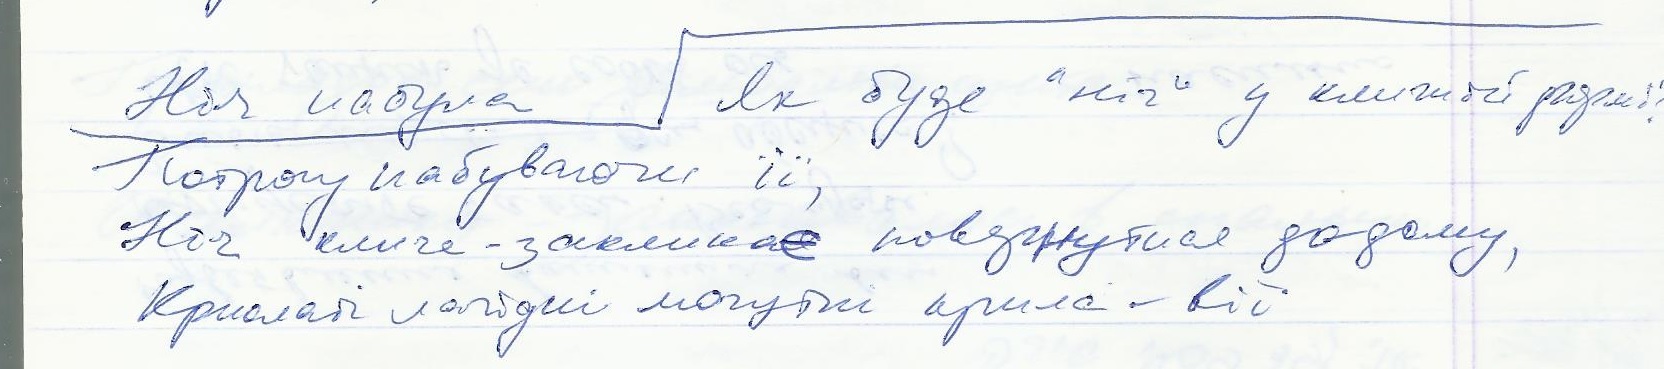 Ніч набула Як буде "ніч" у кличній формі?
Потроху набуваючи її,
Ніч кличе-закликає повернутися додому,
Крилаті лагідні могутні крила-вії